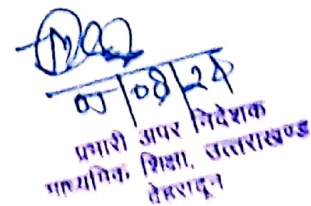 08/24
प्रभारी अपर निदेशक
माध्यमिक शिक्षा, उत्तराखण्ड
देहरादून